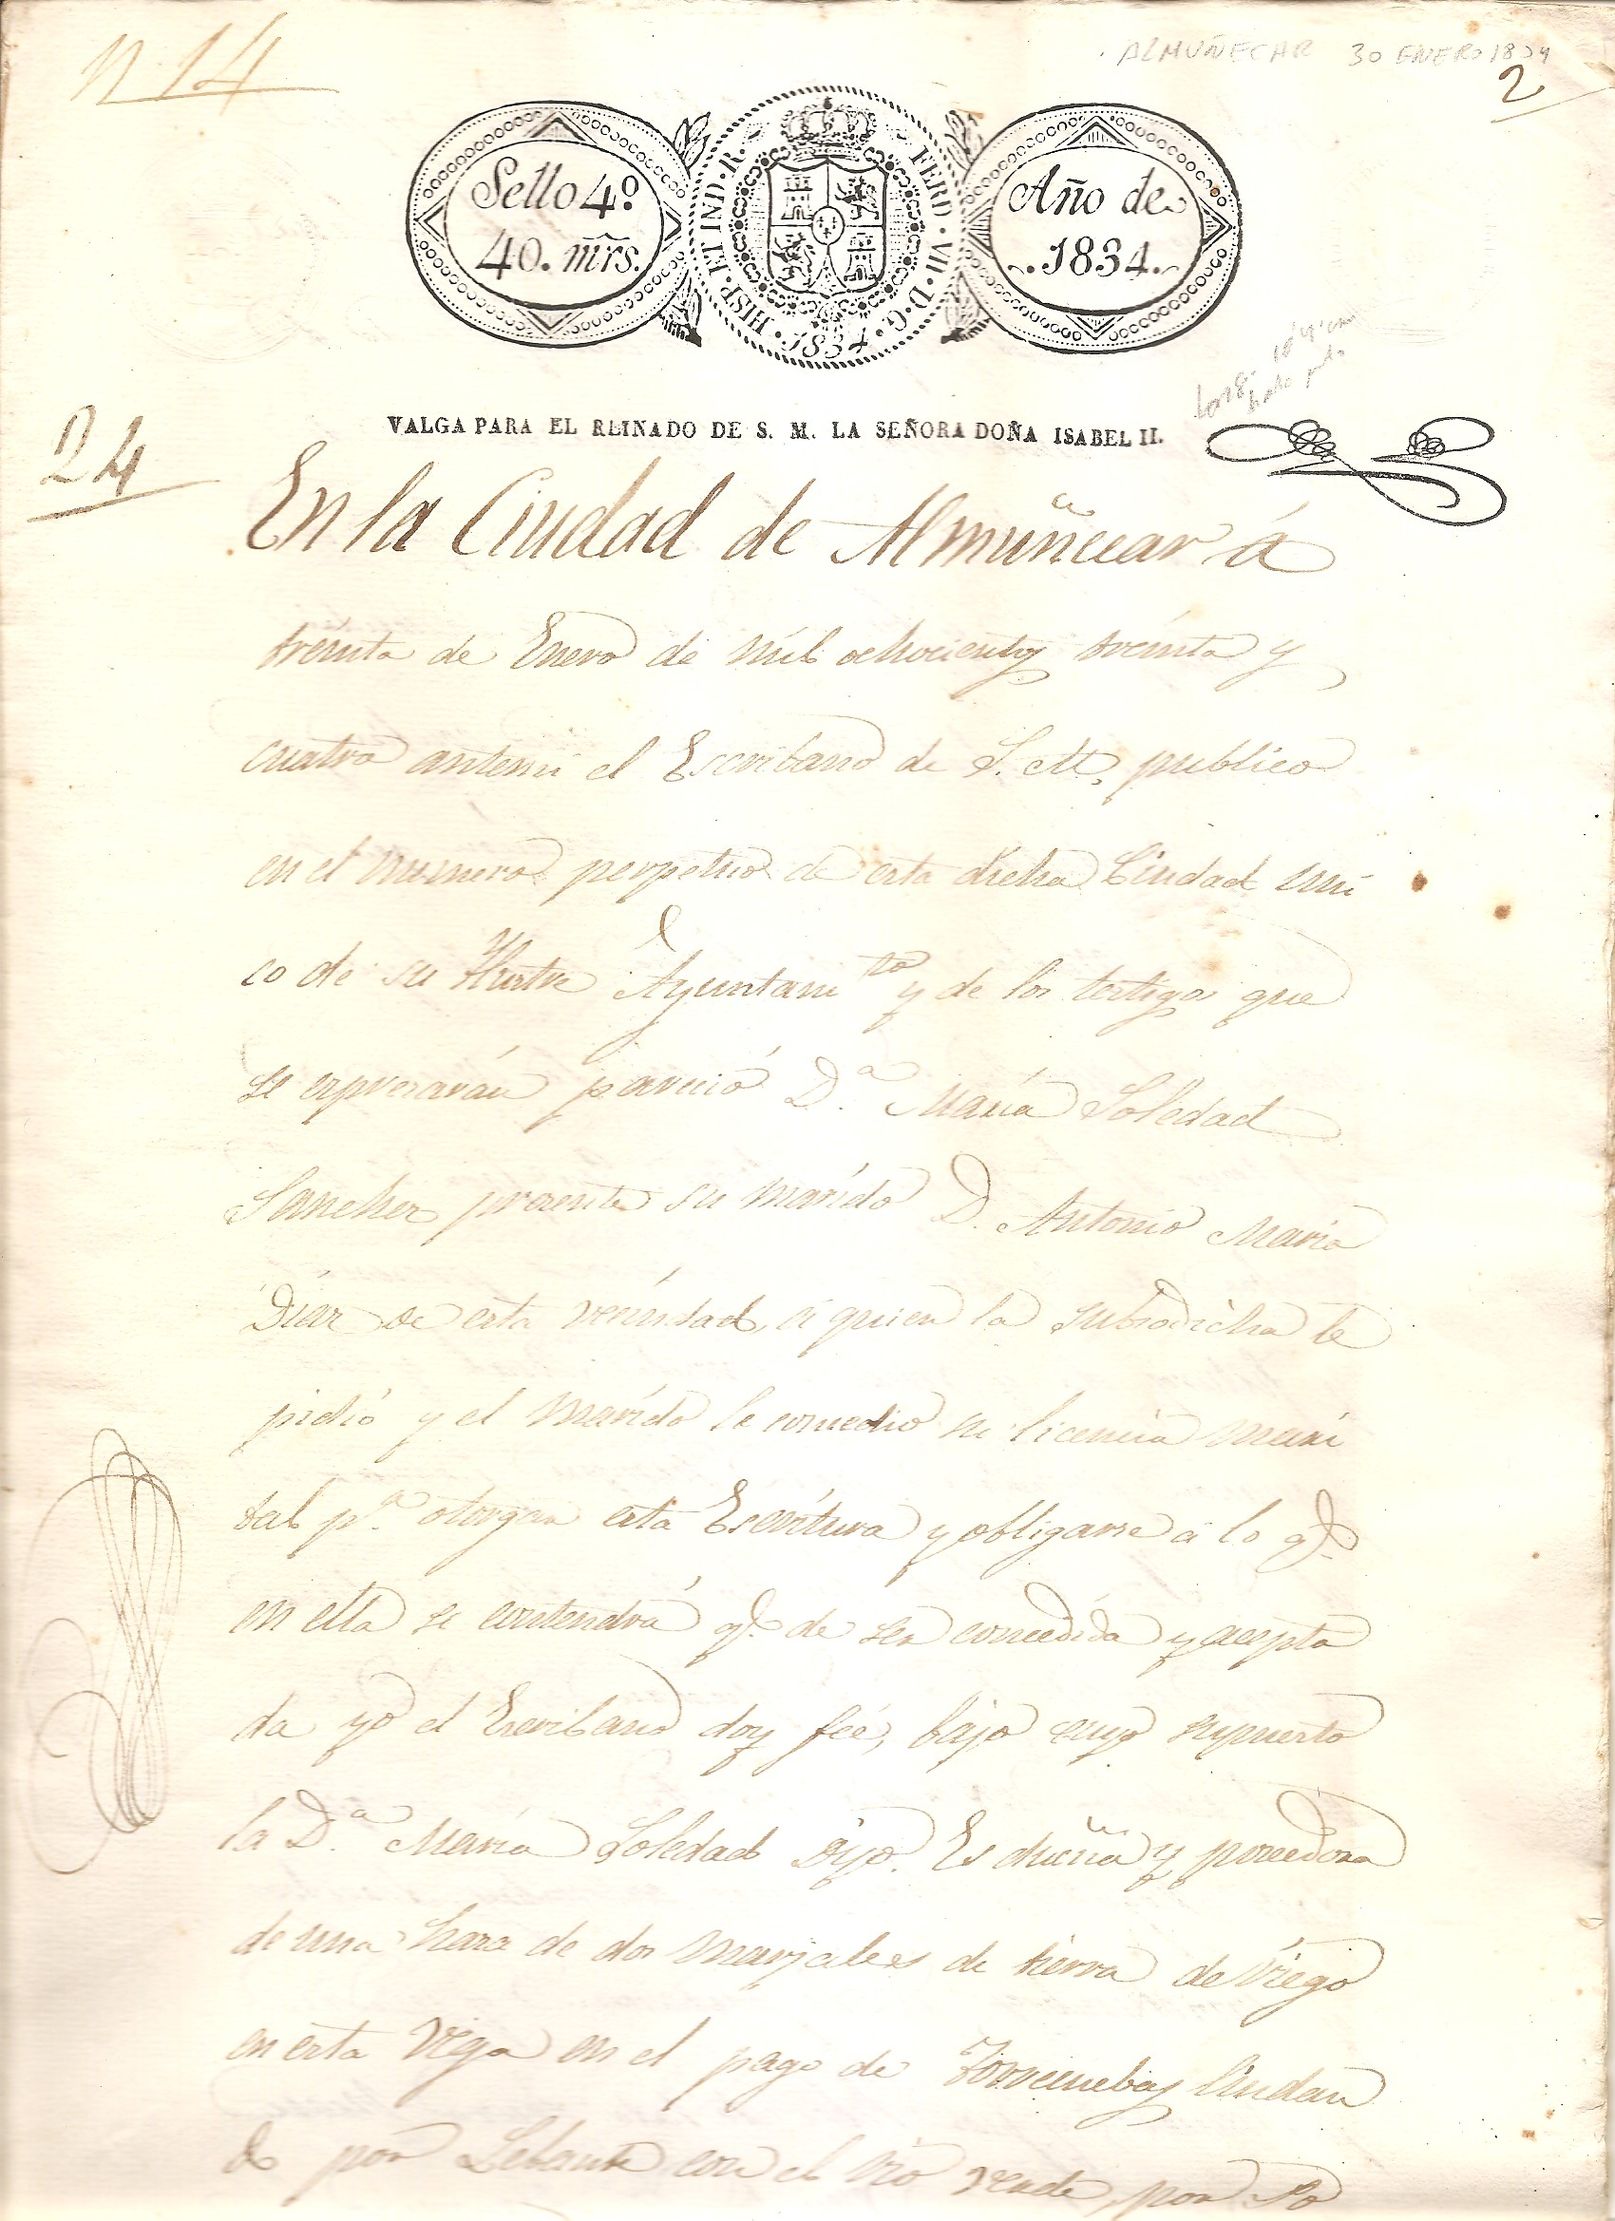 N. 14
ALMUÑECAR 30 ENERO 1834
2
Sello 4º
40. mrs.
HISP. ET IND. R.
FERD. VII. D. G.
1834
Año de
1834.
VALGA PARA EL REINADO DE S. M. LA SEÑORA DOÑA ISABEL II.
24
En la Ciudad de Almuñecar á
treinta de Enero de mil ochocientos treinta y
cuatro antemi el Escribano de S. M. publico
en el numero perpetuo de esta dicha Ciudad uni
co de su Iltre Ayuntamto y de los testigos que
se expresarán pareció Da. María Soledad
Sanchez presente su marído D. Antonio María
Díaz de esta vecindad, á quien la subsodicha le
pidió y el marído le concedio su licencia mari
tal pa. otorgar esta Escritura y obligarse á lo q.
en ella se contendrá q. de ser concedida y acepta
da yo el Escribano doy feé, bajo cuyo supuesto
la Da. María Soledad Dijo. Es dueña y poseedora
de una haza de dos marjales de tierra de riego
en esta Vega en el pago de Torrecuebas lindan
do por Lebante con el rio verde, por Po